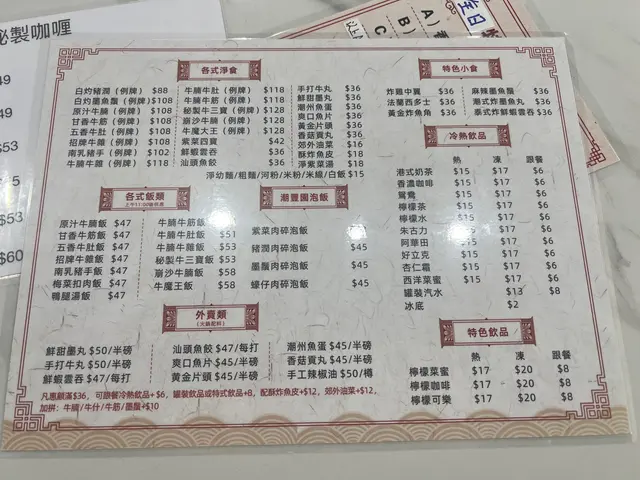 秘製咖喱
49
49
$53
$53
$60
至日
A)
B)
C
各式淨食
白灼豬潤（例牌）$88
白灼墨魚鬚（例牌）$108
原汁牛腩（例牌）$108
甘香牛筋（例牌）$108
五香牛肚（例牌）$108
招牌牛雜（例牌）$108
南乳豬手（例牌）$102
牛腩牛雜（例牌）$118
牛腩牛肚（例牌）$118
牛腩牛筋（例牌）$118
秘製牛三寶（例牌）$128
崩沙牛腩（例牌）$128
牛魔大王（例牌）$128
紫菜四寶 $42
鮮蝦雲吞 $36
汕頭魚餃 $36
手打牛丸 $36
鮮甜墨丸 $36
潮州魚蛋 $36
爽口魚片 $36
黃金片頭 $36
香菇貢丸 $36
郊外油菜 $16
酥炸魚皮 $18
淨紫菜湯 $18
淨幼麵/粗麵/河粉/米粉/米線/白飯 $15
特色小食
炸雞中翼 $36
法蘭西多士 $36
黃金炸魚角 $36
麻辣墨魚鬚 $36
潮式炸墨魚丸 $36
泰式炸鮮蝦雲吞 $36
冷熱飲品
熱 凍 跟餐
港式奶茶 $15 $17 $6
香濃咖啡 $15 $17 $6
鴛鴦 $15 $17 $6
檸檬茶 $15 $17 $6
檸檬水 $15 $17 $6
朱古力 $15 $17 $6
阿華田 $15 $17 $6
好立克 $15 $17 $6
杏仁霜 $15 $17 $6
西洋菜蜜 $15 $17 $6
罐裝汽水 $13 $8
冰底 $2
各式飯類
原汁牛腩飯 $47
甘香牛筋飯 $47
五香牛肚飯 $47
招牌牛雜飯 $47
南乳豬手飯 $47
梅菜扣肉飯 $47
鴨腿湯飯 $47
牛腩牛筋飯
牛腩牛肚飯 $51
牛腩牛雜飯 $53
秘製牛三寶飯 $53
崩沙牛腩飯 $58
牛魔王飯 $58
潮豐園泡飯
紫菜肉碎泡飯
豬潤肉碎泡飯 $45
墨鬚肉碎泡飯 $45
蠔仔肉碎泡飯 $45
外賣類
（火鍋配料）
鮮甜墨丸 $50/半磅
手打牛丸 $50/半磅
鮮蝦雲吞 $47/每打
汕頭魚餃 $47/每打
爽口魚片 $45/半磅
黃金片頭 $45/半磅
潮州魚蛋 $45/半磅
香菇貢丸 $45/半磅
手工辣椒油 $50/樽
特色飲品
熱 凍 跟餐
檸檬菜蜜 $17 $20 $8
檸檬咖啡 $17 $20 $8
檸檬可樂 $17 $20 $8
凡惠顧滿$36，可跟餐冷熱飲品+$6，罐裝飲品或特式飲品+8，配酥炸魚皮+$12，郊外油菜+$12，
加拼：牛腩/牛什/牛筋/墨鬚+$10